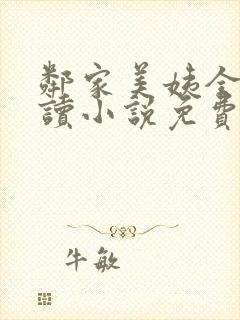 鄰家美姨全
讀小說免費
牛敏